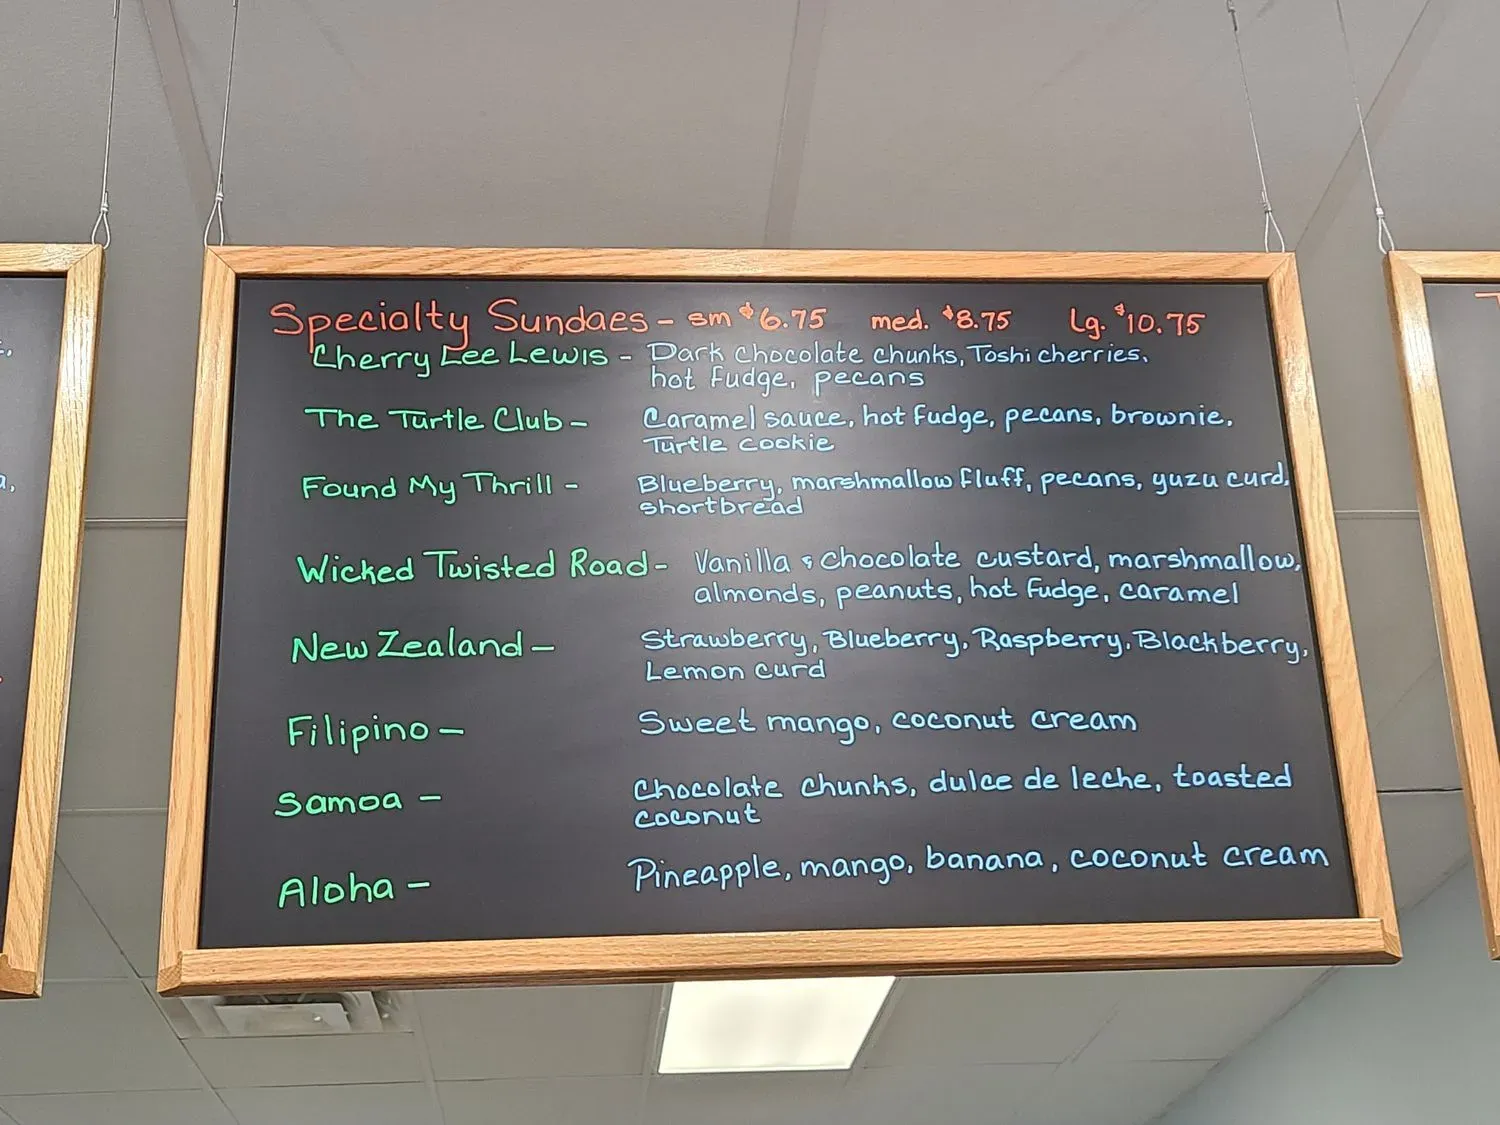 Specialty Sundaes - sm $6.75 med. $8.75 Lg. $10.75
Cherry Lee Lewis - Dark chocolate chunks, Toshi cherries,
hot fudge, pecans
The Turtle Club - Caramel sauce, hot fudge, pecans, brownie,
Turtle cookie
Found My Thrill - Blueberry, marshmallow fluff, pecans, yuzu curd,
shortbread
Wicked Twisted Road - Vanilla & chocolate custard, marshmallow,
almonds, peanuts, hot fudge, caramel
New Zealand - Strawberry, Blueberry, Raspberry, Blackberry,
Lemon curd
Filipino - Sweet mango, coconut cream
Samoa - Chocolate chunks, dulce de leche, toasted
coconut
Aloha - Pineapple, mango, banana, coconut cream